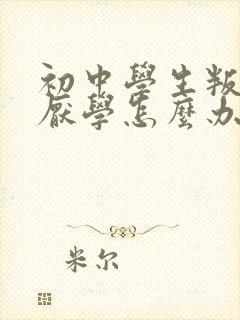 初中學生叛
厭學怎麼办
米尔